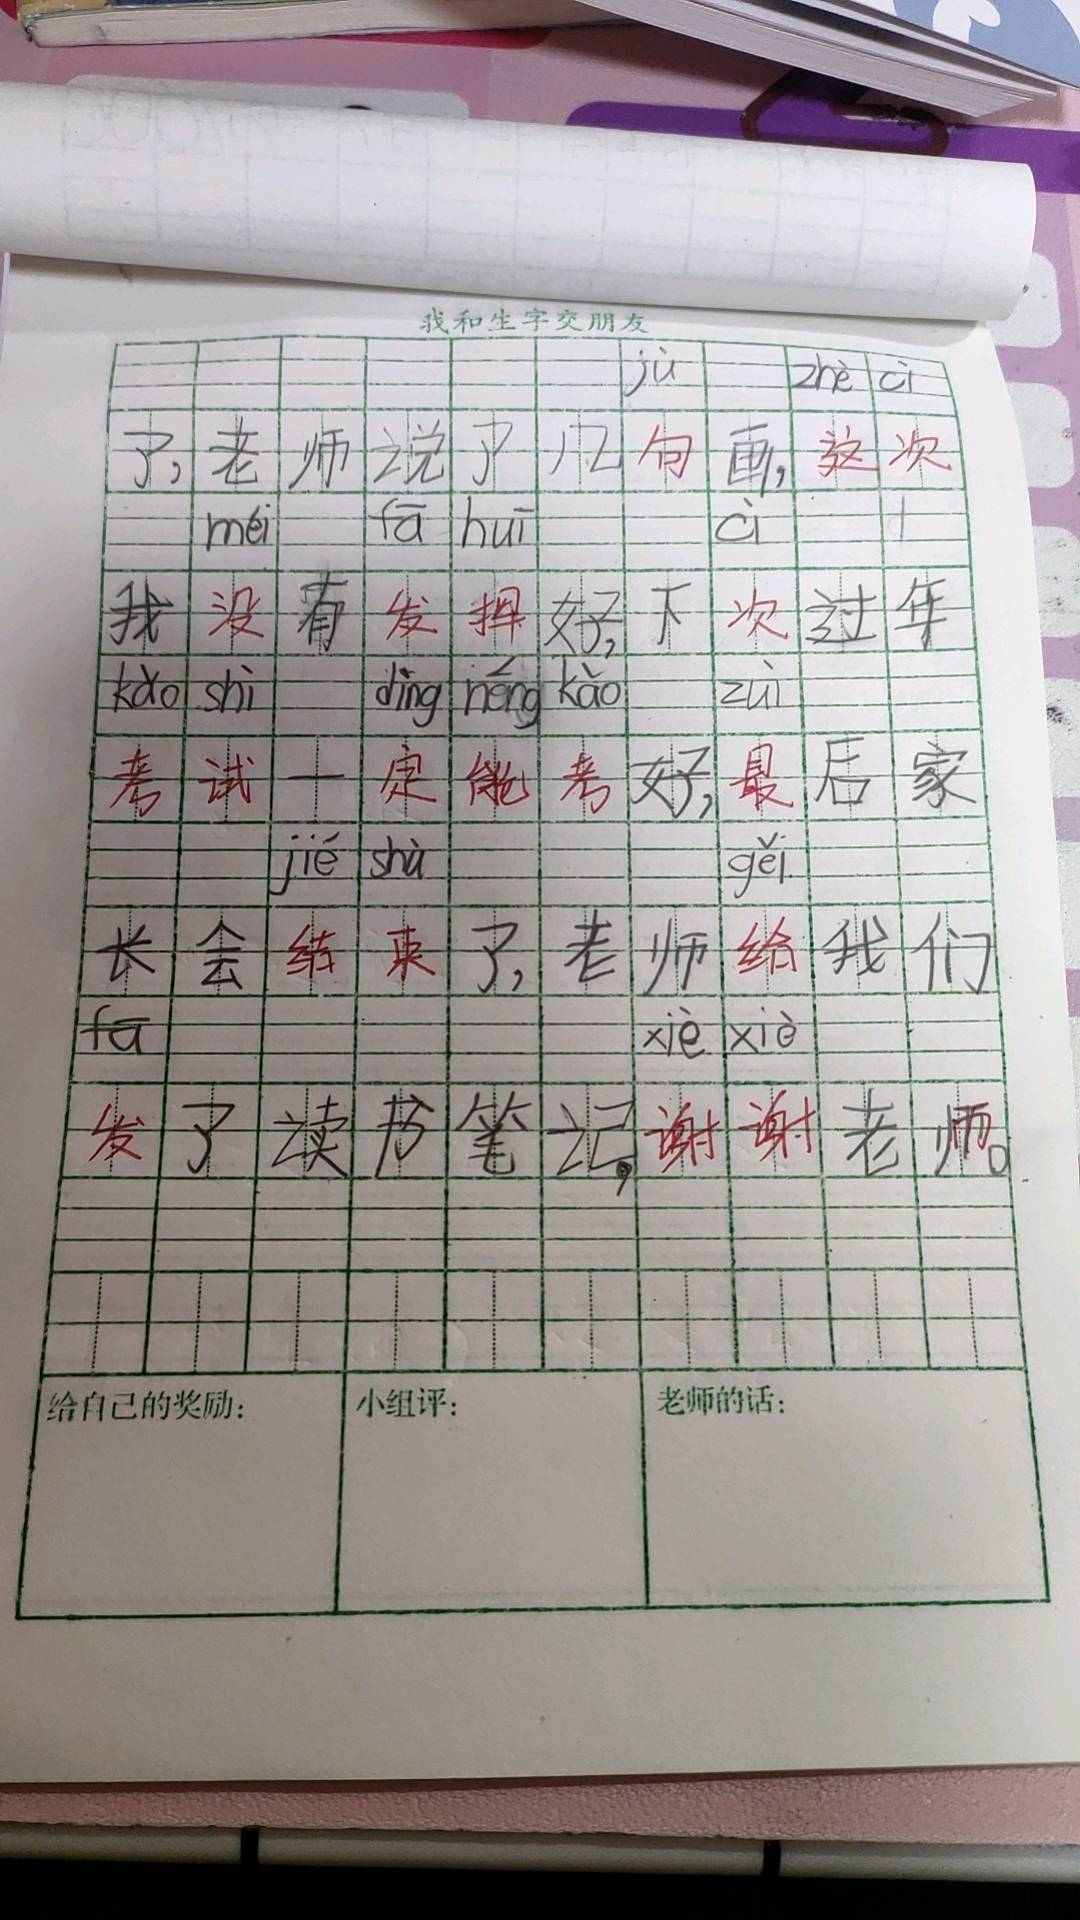 我和生字交朋友
jù zhè cì
了,老师说了几句画,这次
méi fā huī cì
我没有发挥好,下次过年
kǎo shì dìng néng kǎo zuì
考试一定能考好,最后家
jié shù gěi
长会结束了,老师给我们
fā xiè xiè
发了读书笔记,谢谢老师。
给自己的奖励: 小组评: 老师的话: